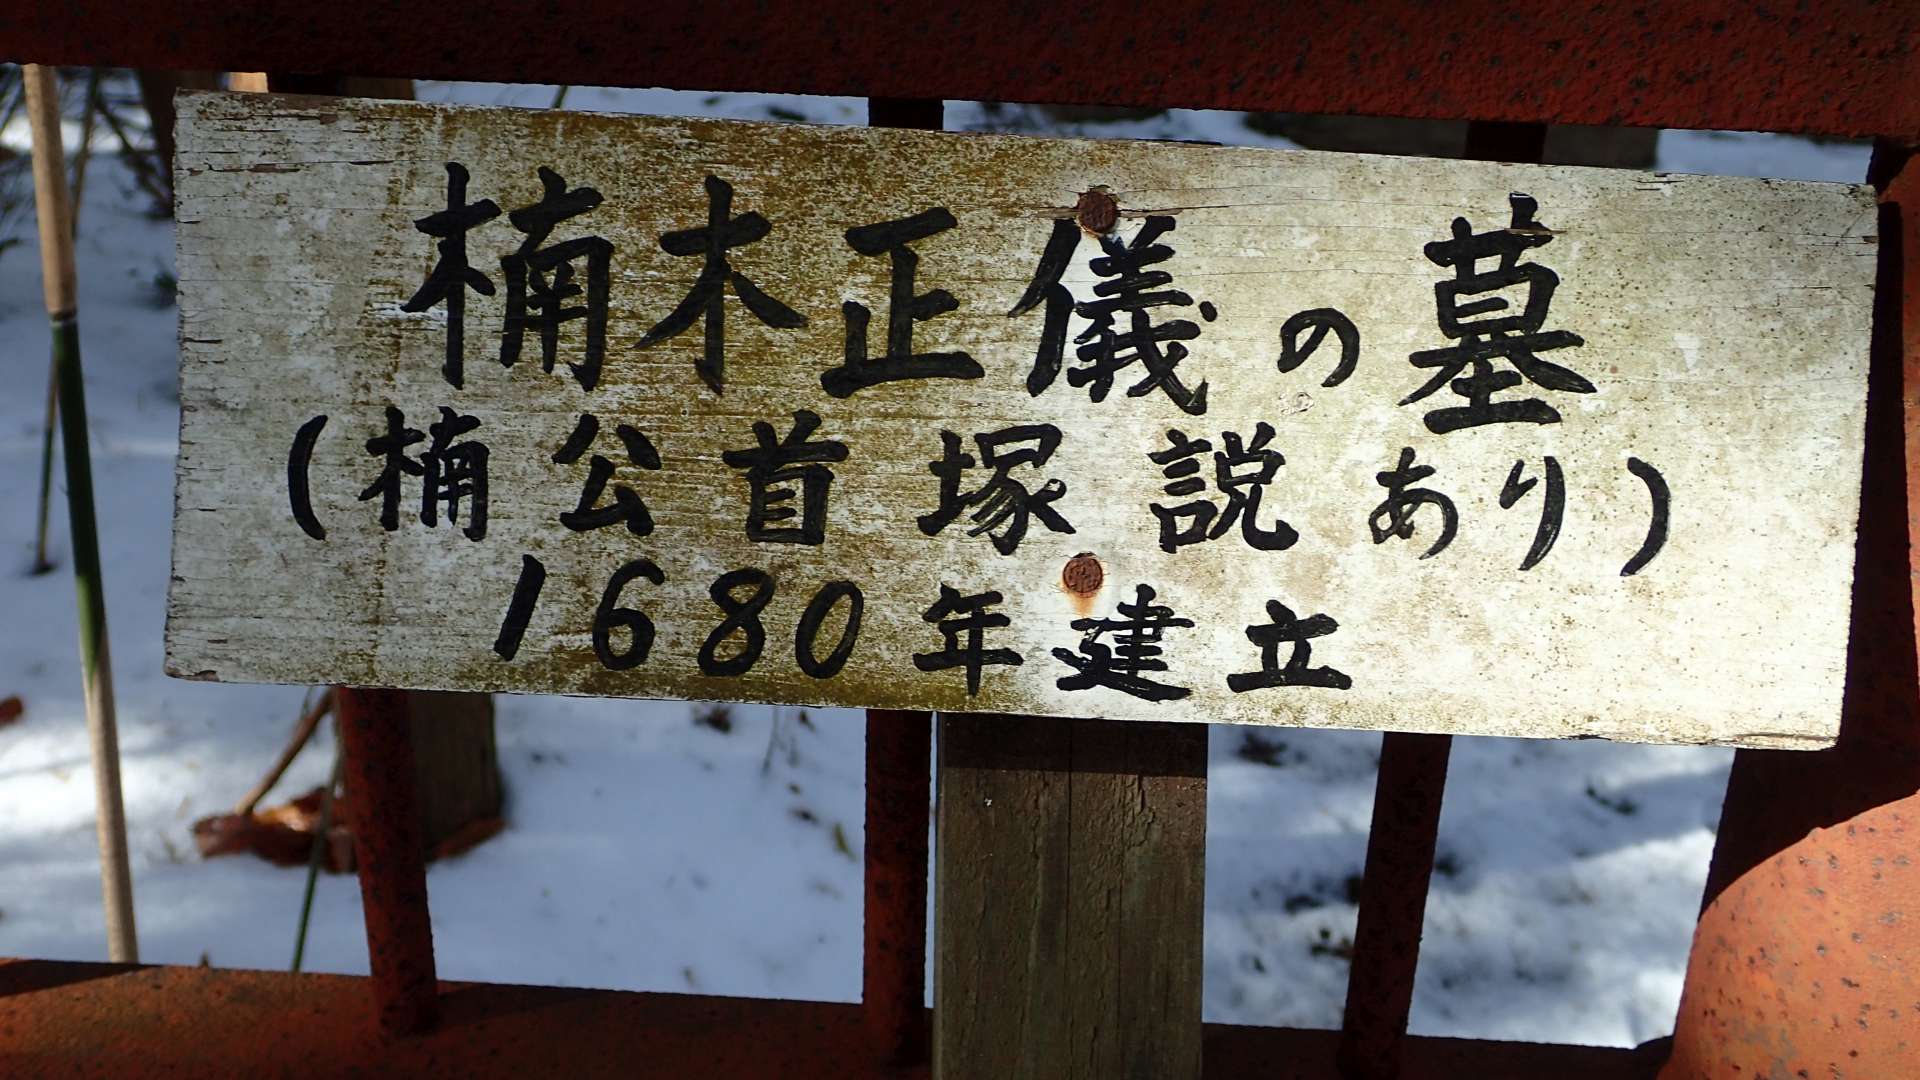 楠木正儀の墓
(楠公首塚説あり)
1680年建立